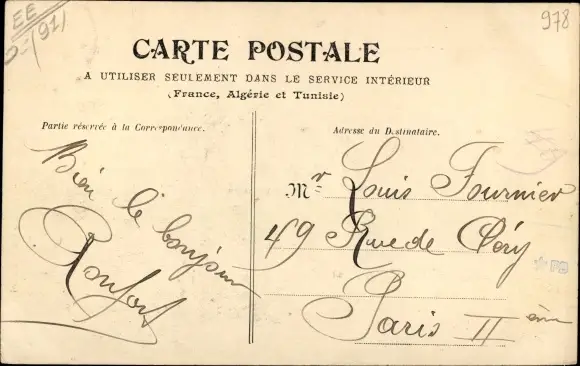 EE
(91)
978
CARTE POSTALE
A UTILISER SEULEMENT DANS LE SERVICE INTÉRIEUR
(France, Algérie et Tunisie)
Partie réservée à la Correspondance.
Adresse du Destinataire.
Bien le bonjour
Mr Louis Fournier
49 Rue de Cléry
Paris II ème